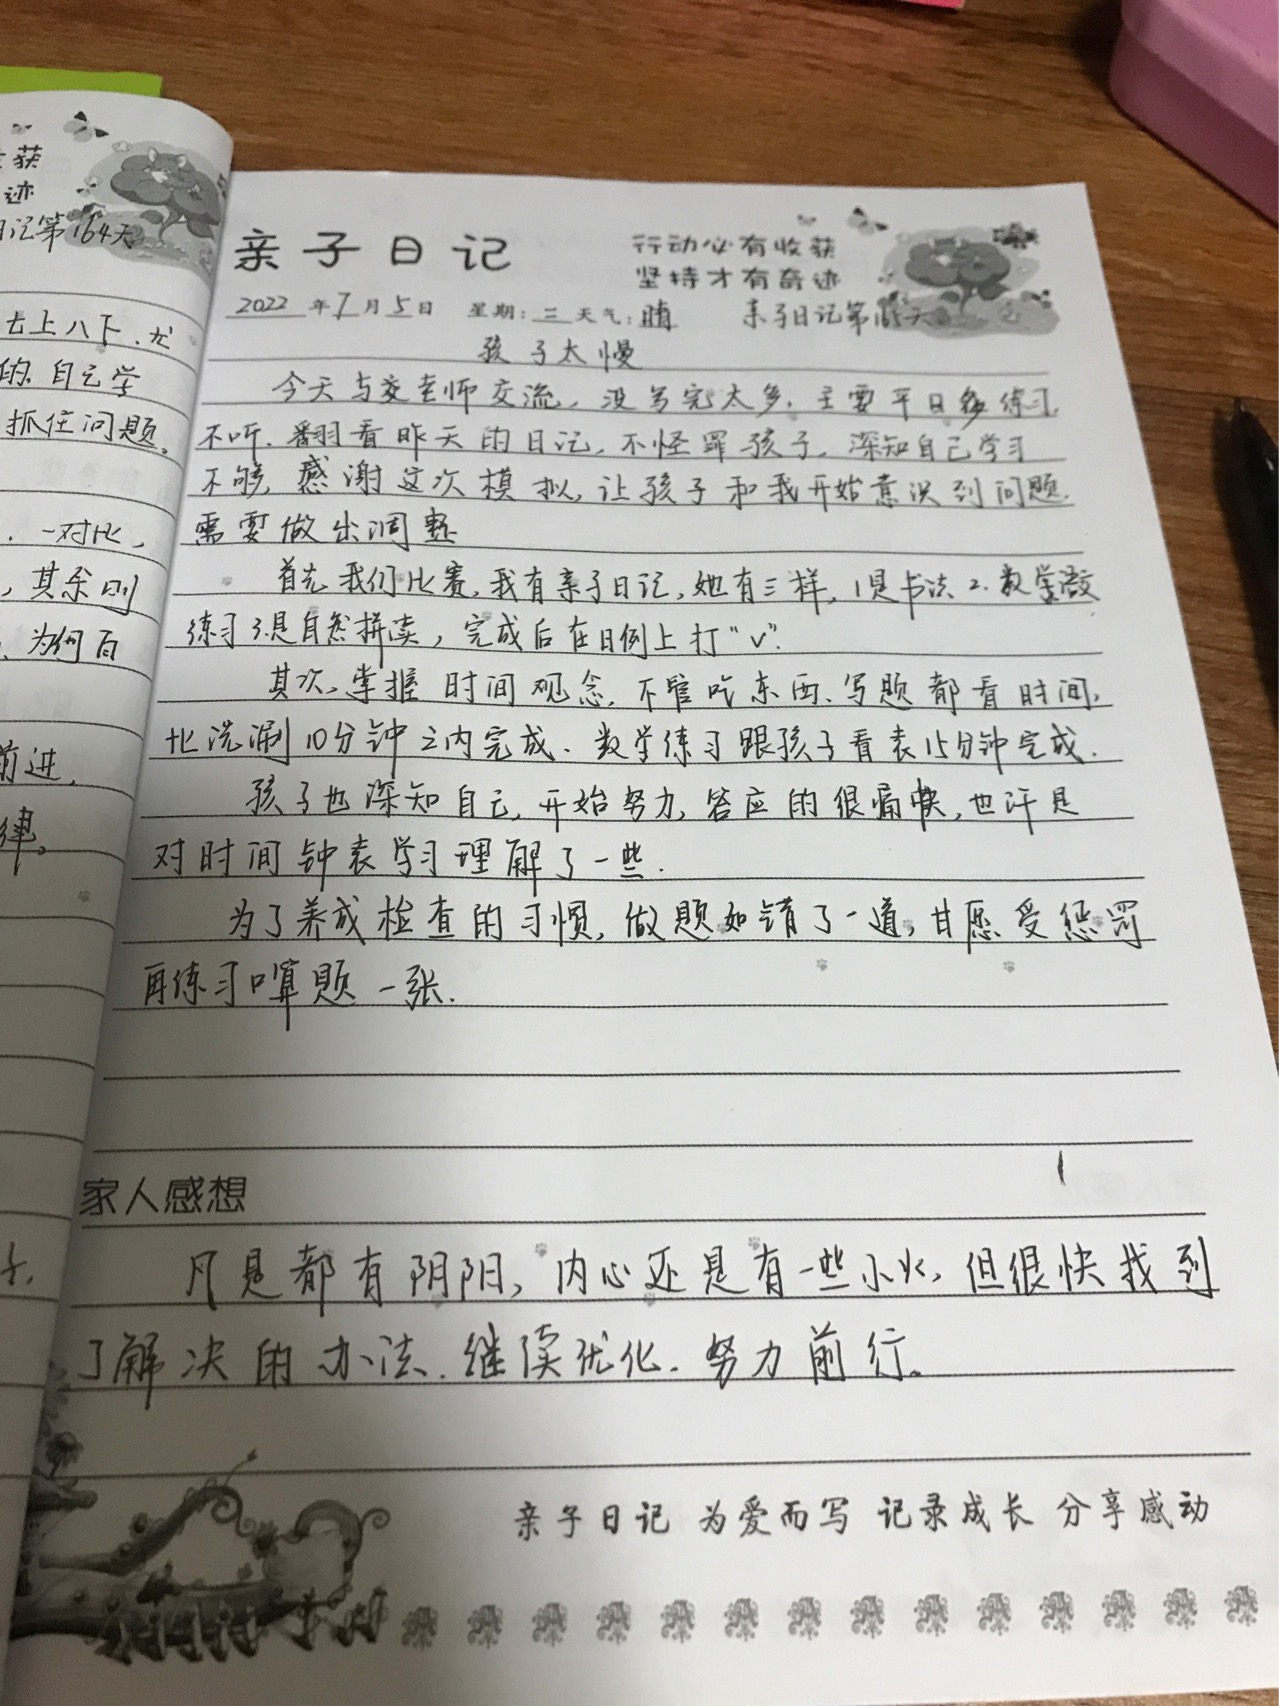 获
迹
日记第164天
七上八下、尤
的自己学
抓住问题。
一对比,
其余则
为何百
前进,
律。
亲子日记
行动必有收获
坚持才有奇迹
2022年7月5日 星期:三 天气:晴 亲子日记第165天
孩子太慢
今天与麦老师交流,没写完太多,主要平日够练习,
不听、翻看昨天的日记,不怪罪孩子,深知自己学习
不够,感谢这次模拟,让孩子和我开始意识到问题,
需要做出调整
首先我们比赛,我有亲子日记,她有三样,1是书法2.数学
练习3.是自然拼读,完成后在日例上打“v”.
其次,掌握时间观念,不管吃东西、写题都看时间,
比洗涮10分钟之内完成、数学练习跟孩子看表15分钟完成.
孩子也深知自己,开始努力,答应的很痛快,也许是
对时间钟表学习理解了一些.
为了养成检查的习惯,做题如错了一道,甘愿受惩罚
再练习口算题一张.
家人感想
凡是都有阴阳,内心还是有一些小火,但很快找到
了解决的办法.继续优化.努力前行。
亲子日记 为爱而写 记录成长 分享感动